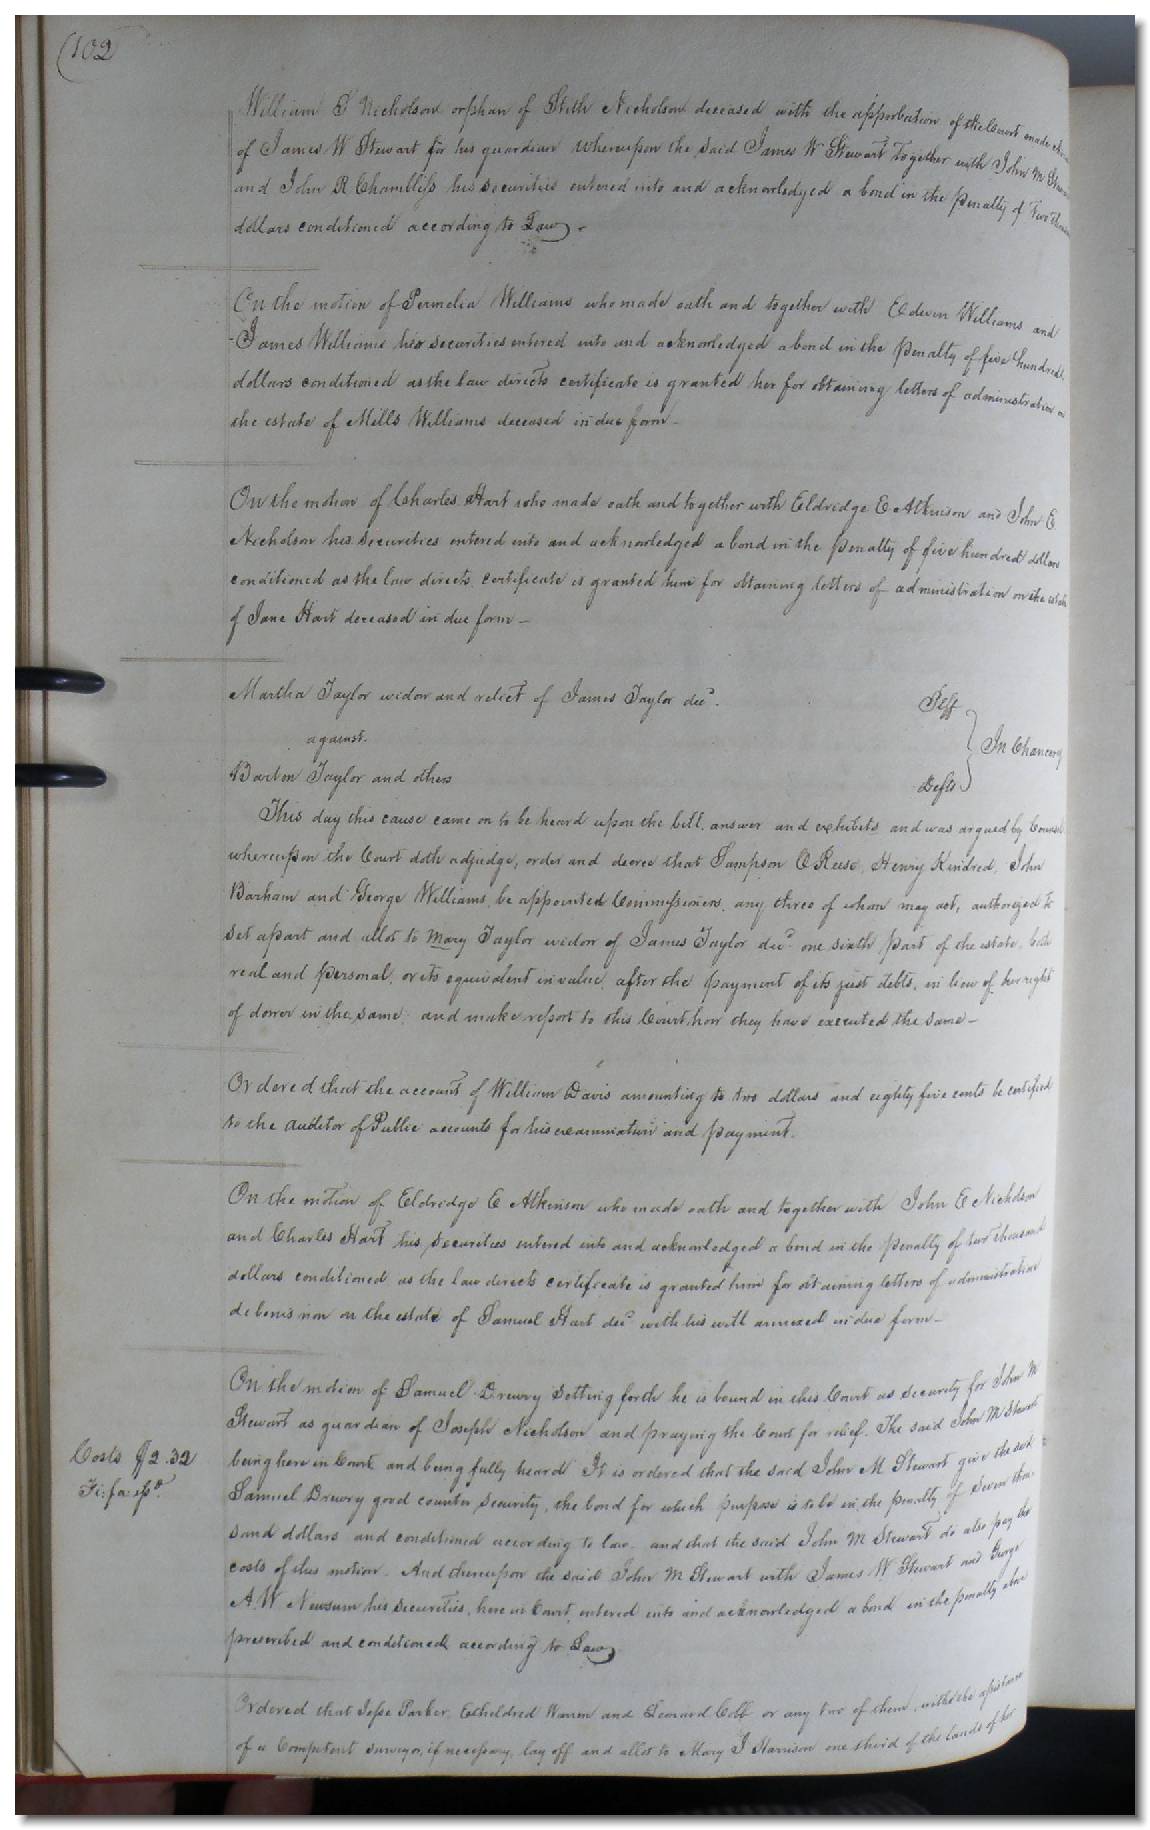 (102
William S Nicholson orphan of Stith Nicholson deceased with the approbation of the Court made
of James W Stewart for his guardian whereupon the said James W Stewart together with John M
and John R Chambliss his securities entered into and acknowledged a bond in the penalty of two
dollars conditioned according to Law.
On the motion of Permelia Williams who made oath and together with Edwin Williams and
James Williams his securities entered into and acknowledged a bond in the penalty of five hundred
dollars conditioned as the law directs certificate is granted her for obtaining letters of administration on
the estate of Mills Williams deceased in due form -
On the motion of Charles Hart who made oath and together with Eldridge E Atkinson and John E
Nicholson his securities entered into and acknowledged a bond in the penalty of five hundred dollars
conditioned as the law directs certificate is granted him for obtaining letters of administration on the estate
of Jane Hart deceased in due form -
Martha Taylor widow and relict of James Taylor decd. Plff
against. In Chancery
Barton Taylor and others Defts
This day this cause came on to be heard upon the bill, answer and exhibits and was argued by Counsel
whereupon the Court doth adjudge, order and decree that Sampson C Reese, Henry Kindred, John
Barham and George Williams, be appointed Commissioners, any three of whom may act, authorized to
set apart and allot to Mary Taylor widow of James Taylor decd one sixth part of the estate, both
real and personal, or its equivalent in value, after the payment of its just debts, in lieu of her right
of dower in the same, and make report to this Court how they have executed the same -
Ordered that the account of William Davis amounting to two dollars and eighty five cents be certified
to the auditor of Public accounts for his examination and payment.
On the motion of Eldridge E Atkinson who made oath and together with John E Nicholson
and Charles Hart his securities entered into and acknowledged a bond in the penalty of two thousand
dollars conditioned as the law directs certificate is granted him for obtaining letters of administration
de bonis non on the estate of Samuel Hart decd with his will annexed in due form -
On the motion of Samuel Drewry setting forth he is bound in this Court as security for John M
Stewart as guardian of Joseph Nicholson and praying the Court for relief. The said John M Stewart
Costs $2.32 being here in Court and being fully heard It is ordered that the said John M Stewart give the said
Fi: fa: Samuel Drewry good counter security, the bond for which purpose is to be in the penalty of seven thou
sand dollars and conditioned according to law, and that the said John M Stewart do also pay the
costs of this motion. And thereupon the said John M Stewart with James W Stewart and George
A W Newsum his securities, here in Court, entered into and acknowledged a bond in the penalty above
prescribed and conditioned according to Law
Ordered that Jesse Parker, Etheldred Warren and Leonard Cobb or any two of them, with the assistance
of a Competent surveyor, if necessary, lay off and allot to Mary J Harrison one third of the lands of her